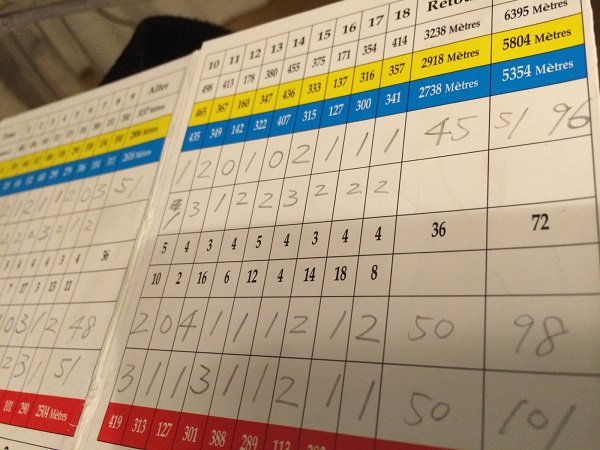 Aller 10 11 12 13 14 15 16 17 18 Retour
498 413 178 380 455 375 171 354 414 3238 Mètres 6395 Mètres
465 367 160 347 436 333 137 316 357 2918 Mètres 5804 Mètres
2616 Mètres 435 349 142 322 407 315 127 300 341 2738 Mètres 5354 Mètres
2 1 1 2 0 3 51 1 2 0 1 0 2 1 1 1 45 51 96
2 2 2 3 2 1 2 3 1 2 2 3 2 2 2
4 4 3 4 36 5 4 3 4 5 4 3 4 4 36 72
7 17 3 13 11 10 2 16 6 12 4 14 18 8
0 3 1 2 48 2 0 4 1 1 1 2 1 2 50 98
2 3 1 51 3 1 1 3 1 1 2 1 1 50 101
101 290 2504 Mètres 419 313 127 301 388 289 113